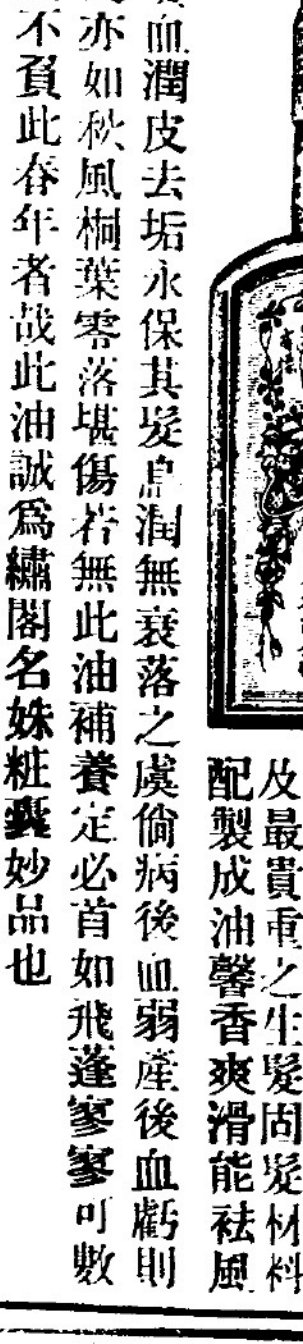 及最貴重之生髮固髮材料
配製成油馨香爽滑能祛風
血潤皮去垢永保其髮烏潤無衰落之虞倘病後血弱產後血虧則
亦如秋風桐葉零落堪傷若無此油補養定必首如飛蓬寥寥可數
不負此春年者哉此油誠為繡閣名姝粧臺妙品也